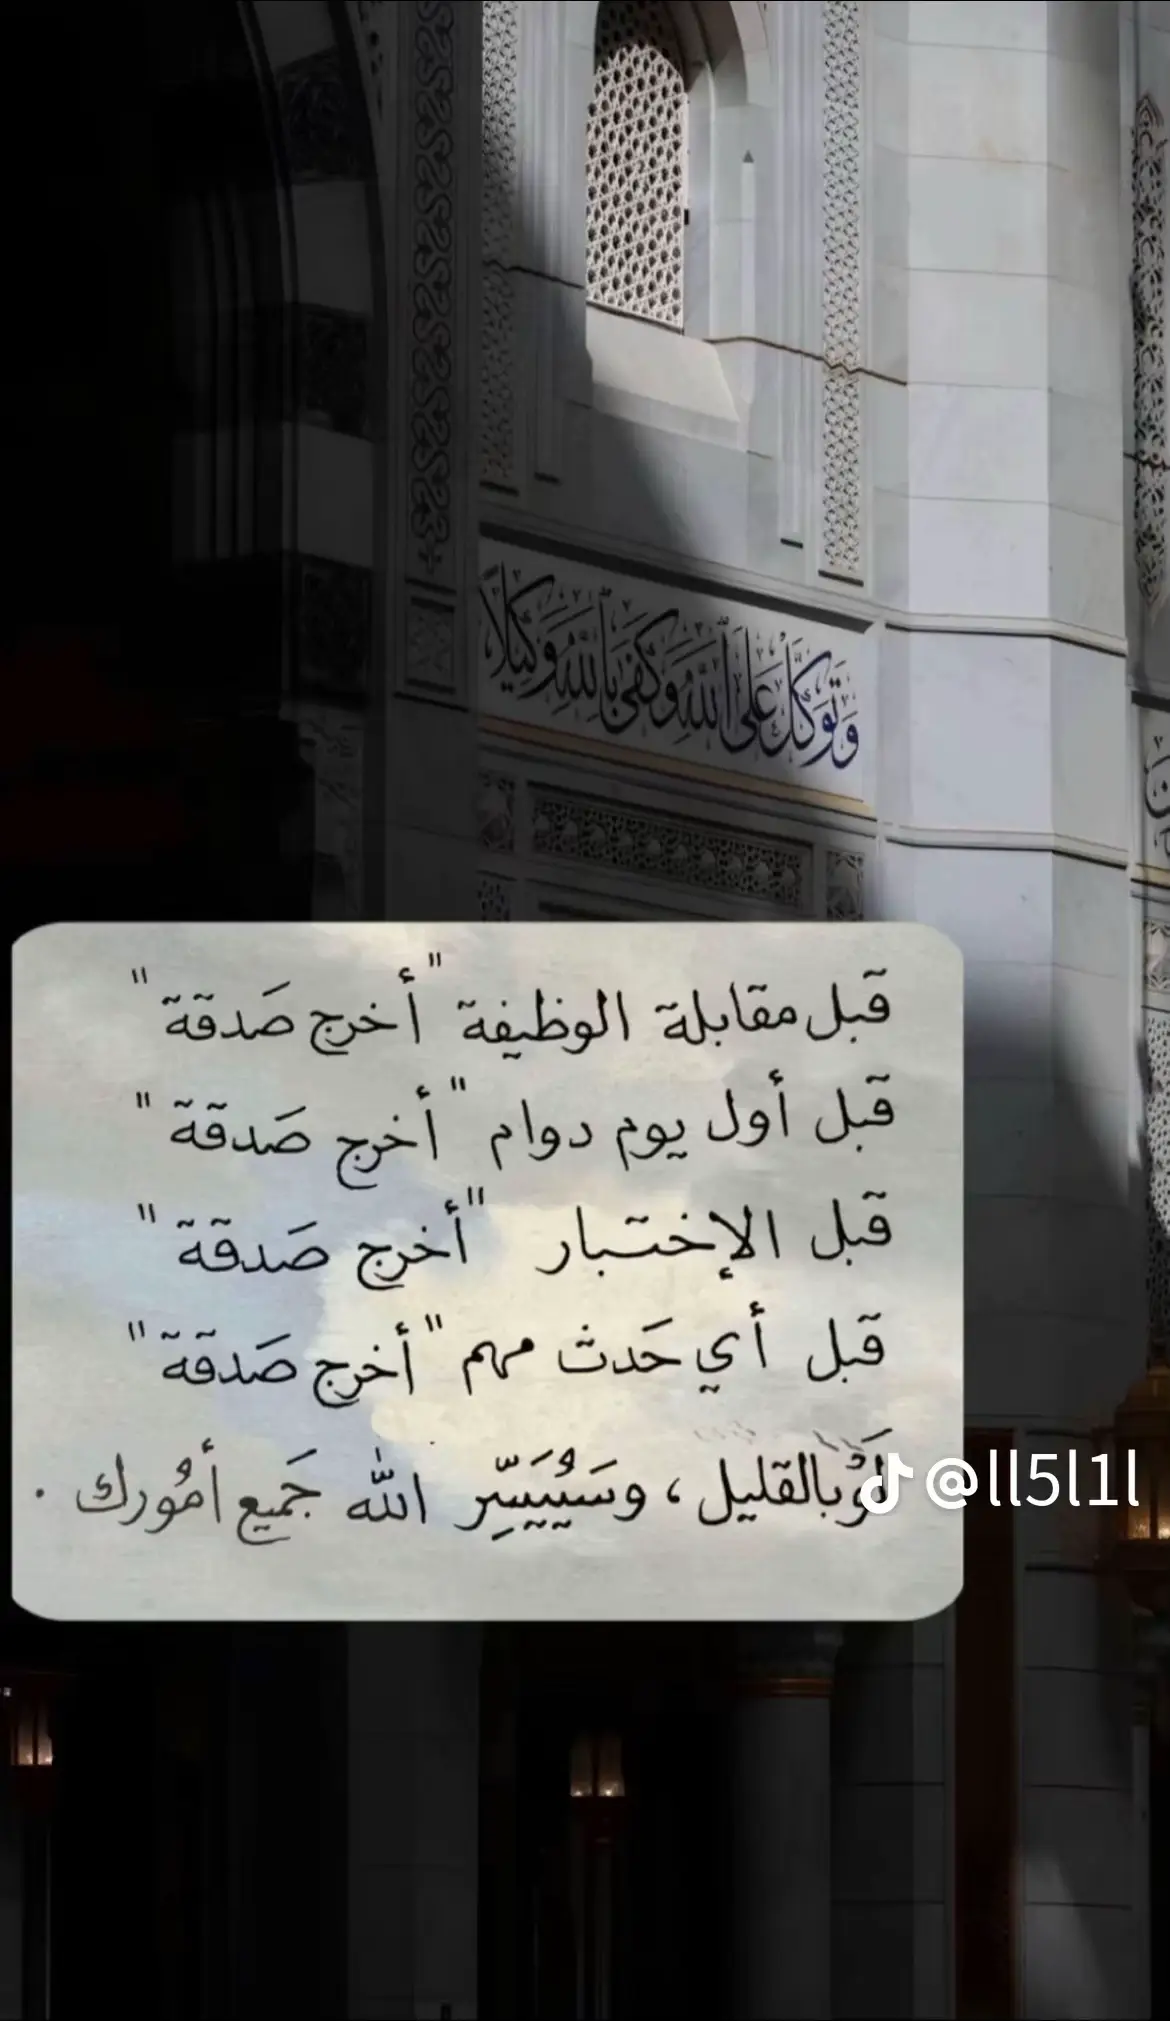 وَتَوَكَّلْ عَلَى ٱللَّهِ وَكَفَىٰ بِٱللَّهِ وَكِيلًا
قبل مقابلة الوظيفة "أخرج صَدقة"
قبل أول يوم دوام "أخرج صَدقة"
قبل الإختبار "أخرج صَدقة"
قبل أي حَدث مهم "أخرج صَدقة"
لَوْ بالقليل ، وسَيُيَسِّر الله جَميع أمُورك .
@ll5l1l